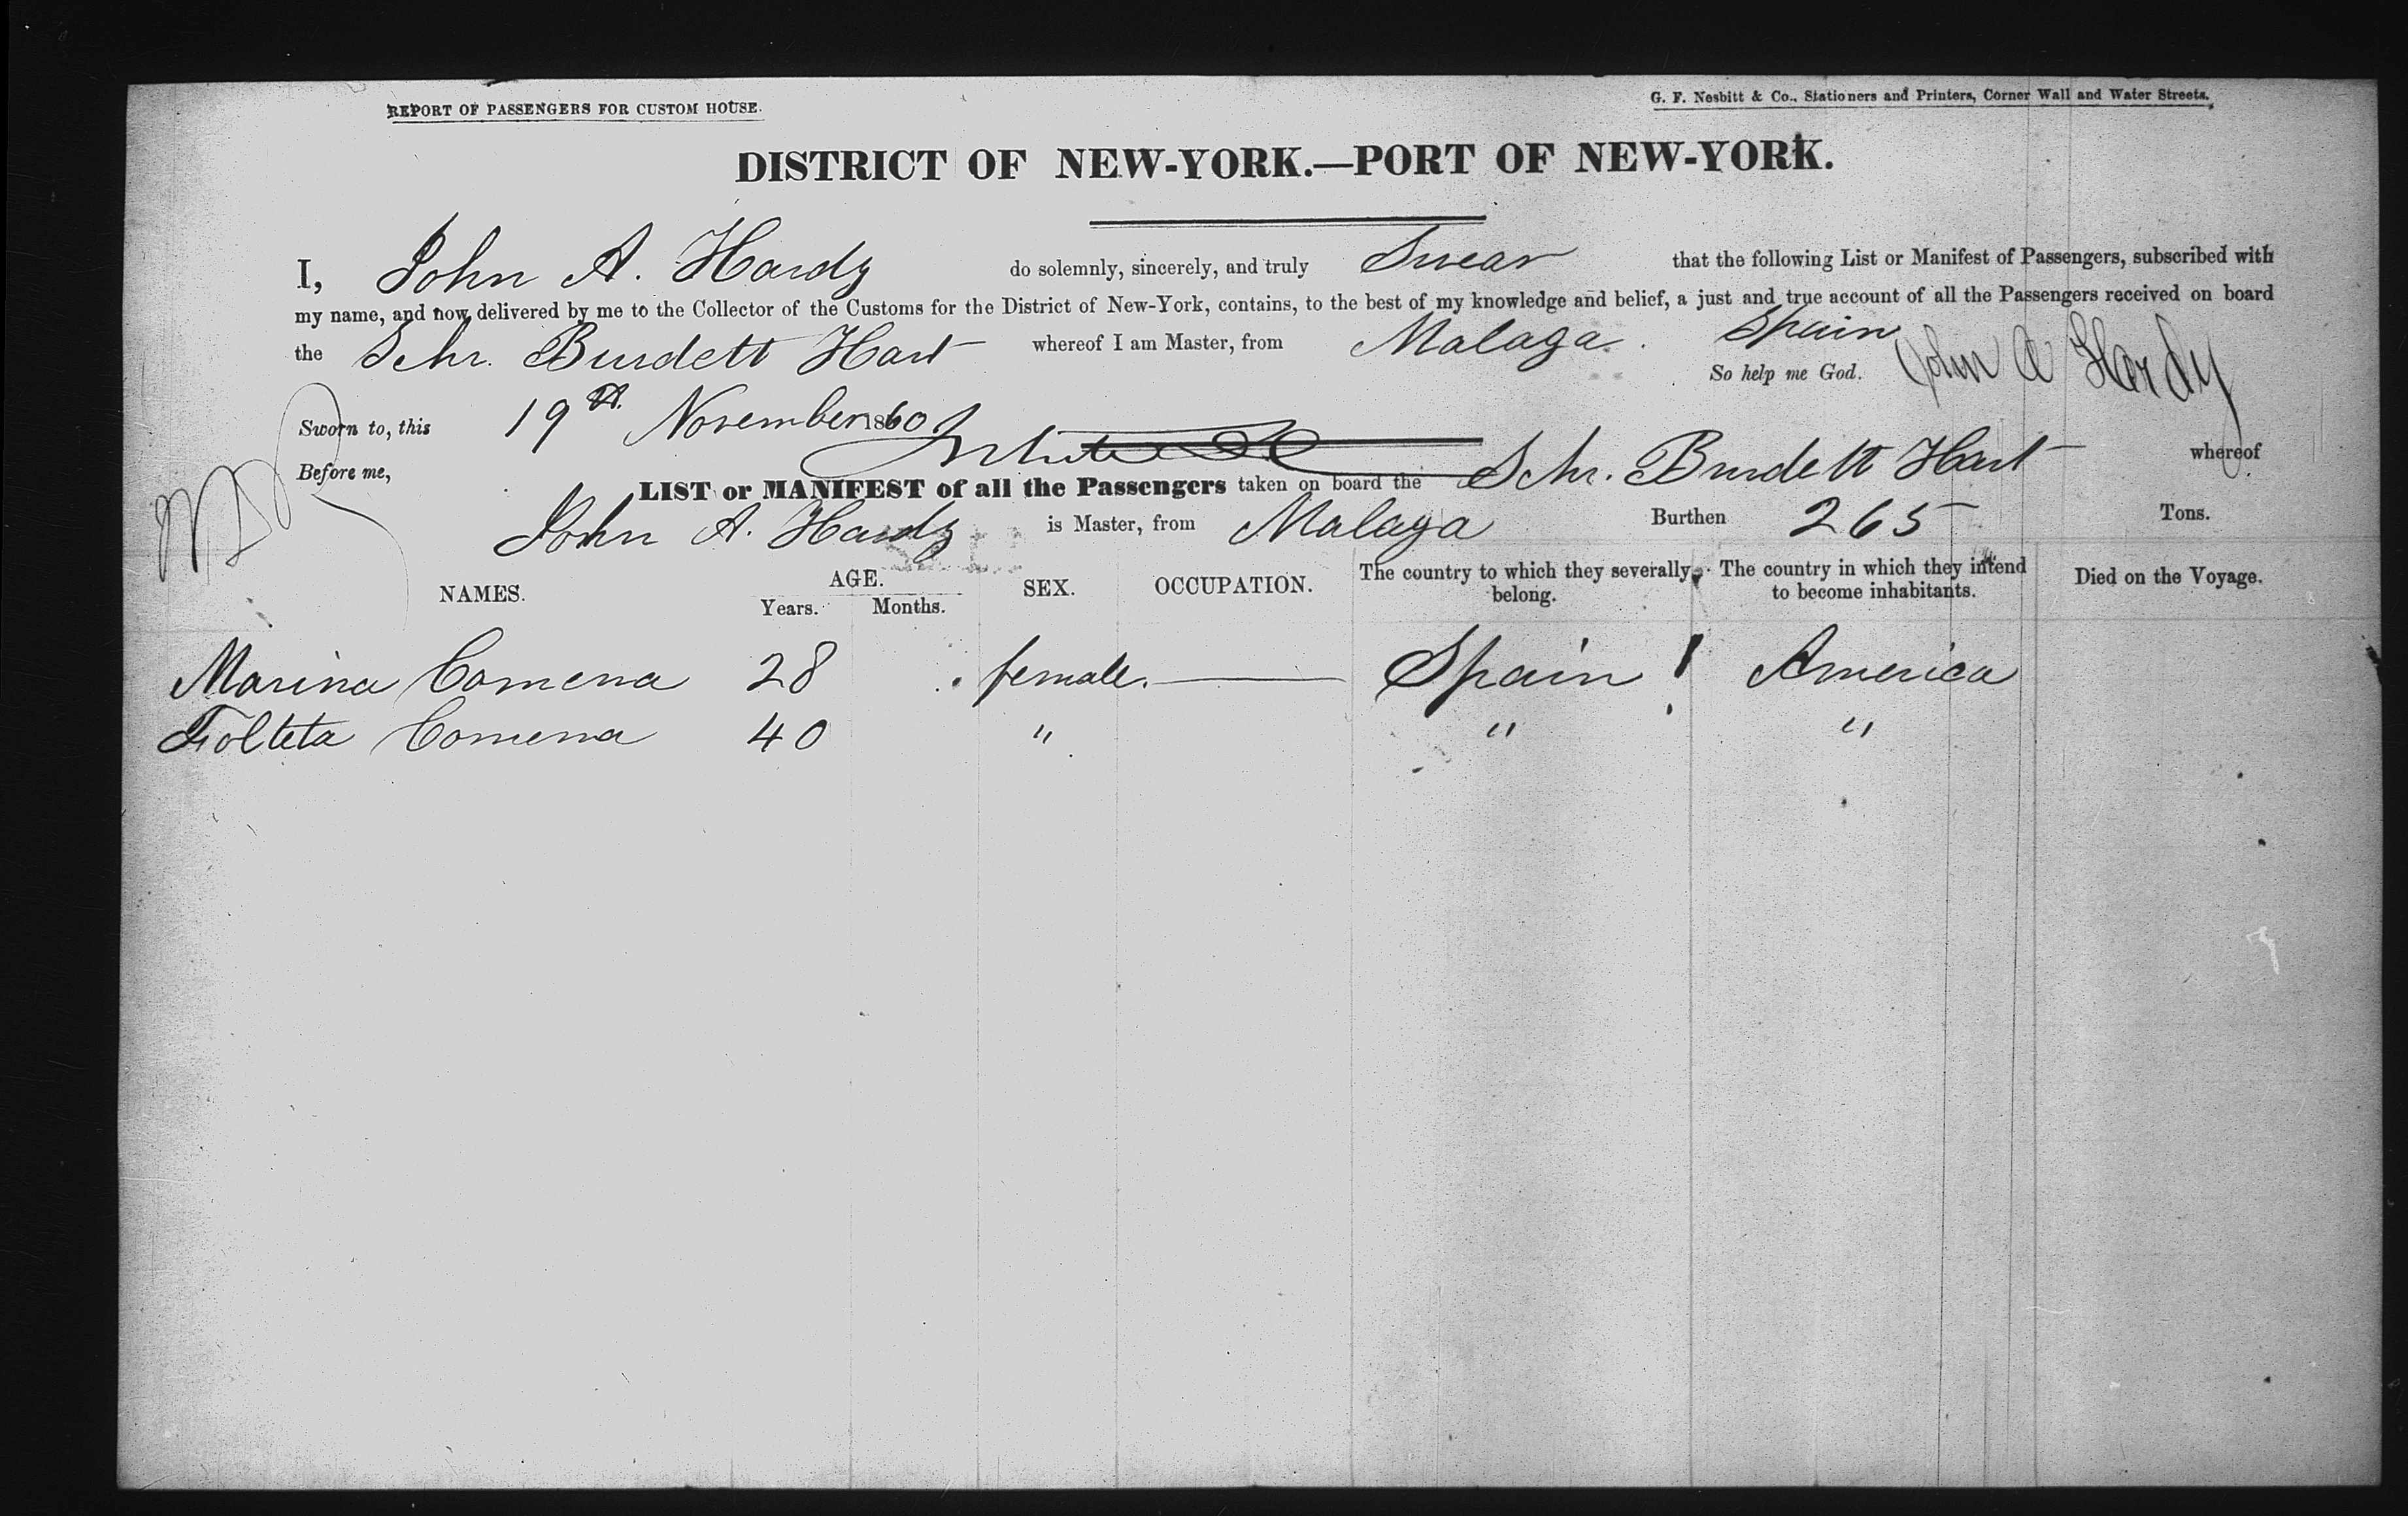 REPORT OF PASSENGERS FOR CUSTOM HOUSE.
G. F. Nesbitt & Co., Stationers and Printers, Corner Wall and Water Streets.
DISTRICT OF NEW-YORK.—PORT OF NEW-YORK.
I, John A. Hardy do solemnly, sincerely, and truly Swear that the following List or Manifest of Passengers, subscribed with
my name, and now delivered by me to the Collector of the Customs for the District of New-York, contains, to the best of my knowledge and belief, a just and true account of all the Passengers received on board
the Schr. Burdett Hart whereof I am Master, from Malaga. Spain
So help me God. John A Hardy
Sworn to, this 19th November 1860
Before me,
LIST or MANIFEST of all the Passengers taken on board the Schr. Burdett Hart whereof
John A. Hardy is Master, from Malaga Burthen 265 Tons.
NAMES. AGE. SEX. OCCUPATION. The country to which they severally belong. The country in which they intend to become inhabitants. Died on the Voyage.
Years. Months.
Marina Comena 28 female. — Spain America
Comena 40 " " "